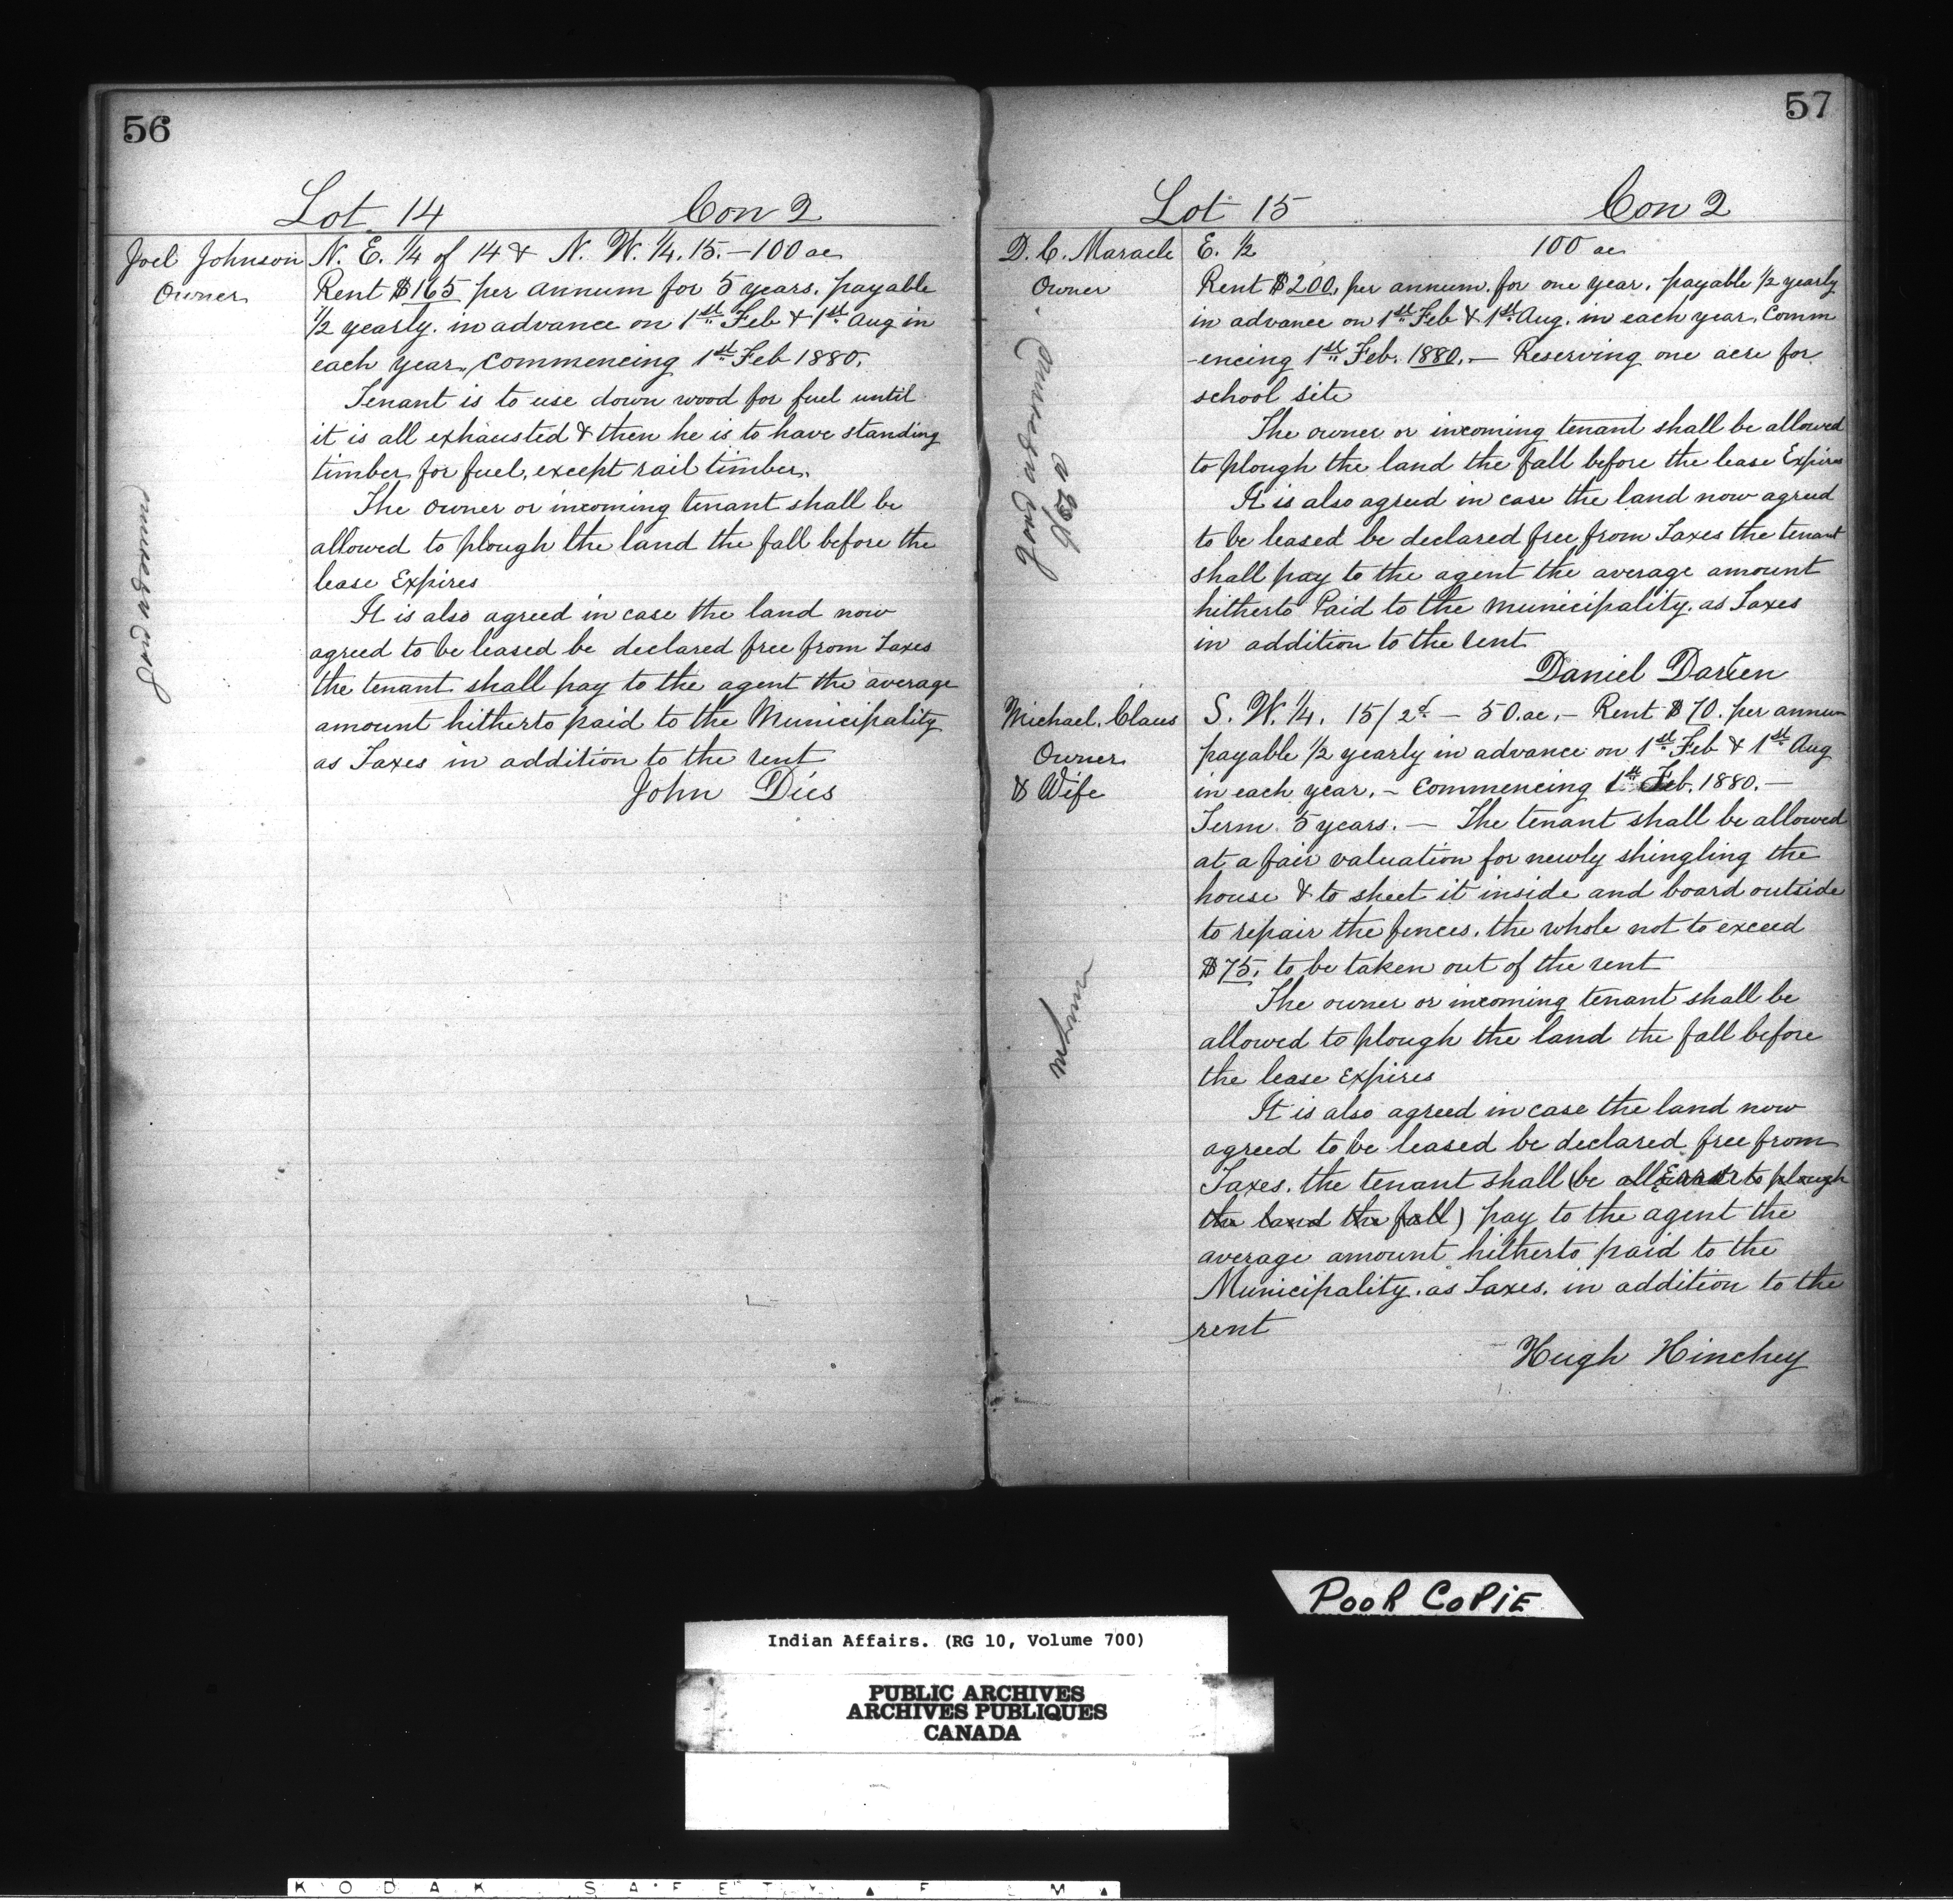 56
Lot 14 Con 2
Joel Johnson
Owner
N. E. 1/4 of 14 & N. W. 1/4. 15. — 100 ac
Rent $165 per annum for 5 years. payable
1/2 yearly. in advance on 1st Feb & 1st Aug in
each year, commencing 1st Feb 1880.
Tenant is to use down wood for fuel until
it is all exhausted & then he is to have standing
timber for fuel, except rail timber.
The owner or incoming tenant shall be
allowed to plough the land the fall before the
lease Expires
It is also agreed in case the land now
agreed to be leased be declared free from Taxes
the tenant shall pay to the agent the average
amount hitherto paid to the Municipality
as Taxes in addition to the rent
John Dies
57
Lot 15 Con 2
D. C. Maracle
Owner
E. 1/2 100 ac
Rent $200. per annum. for one year. payable 1/2 yearly
in advance on 1st Feb & 1st Aug. in each year. Comm
-encing 1st Feb. 1880. — Reserving one acre for
school site
The owner or incoming tenant shall be allowed
to plough the land the fall before the lease Expires
It is also agreed in case the land now agreed
to be leased be declared free from Taxes the tenant
shall pay to the agent the average amount
hitherto Paid to the Municipality. as Taxes
in addition to the rent
Daniel
Michael. Claus
Owner
& Wife
S. W. 1/4. 15/2d — 50. ac. — Rent $70. per annum
payable 1/2 yearly in advance on 1st Feb & 1st Aug
in each year. — Commencing 1st Feb. 1880. —
Term. 5 years. — The tenant shall be allowed
at a fair valuation for newly shingling the
house & to sheet it inside and board outside
to repair the fences. the whole not to exceed
$75. to be taken out of the rent
The owner or incoming tenant shall be
allowed to plough the land the fall before
the lease Expires
It is also agreed in case the land now
agreed to be leased be declared free from
Taxes. the tenant shall (be to plough
the land the fall) pay to the agent the
average amount hitherto paid to the
Municipality. as Taxes. in addition to the
rent
Hugh Hinchey
POOR COPIE
Indian Affairs. (RG 10, Volume 700)
PUBLIC ARCHIVES
ARCHIVES PUBLIQUES
CANADA
KODAK SAFETY